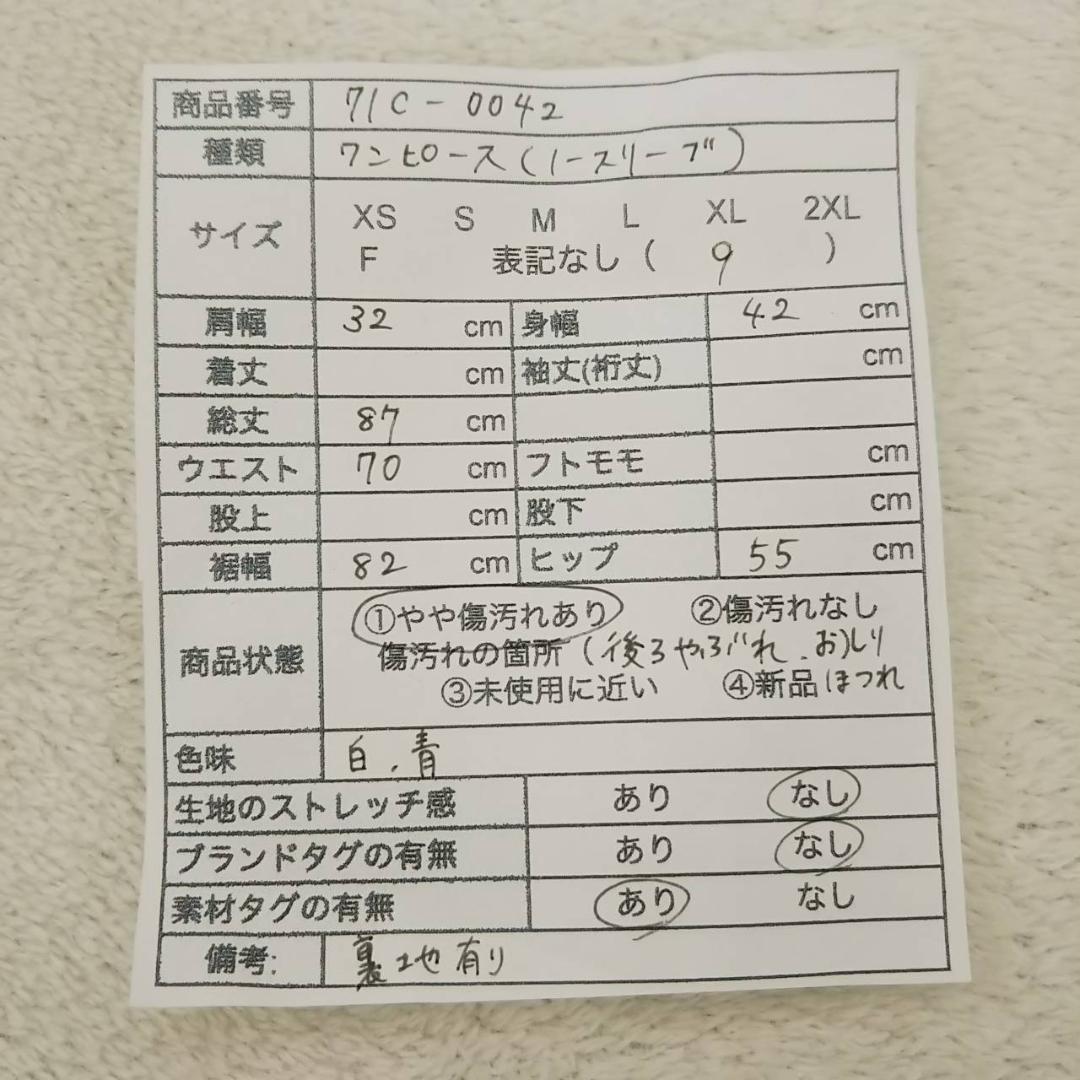 商品番号 71C-0042
種類 ワンピース(ノースリーブ)
サイズ XS S M L XL 2XL
F 表記なし( 9 )
肩幅 32 cm 身幅 42 cm
着丈 cm 袖丈(裄丈) cm
総丈 87 cm
ウエスト 70 cm フトモモ cm
股上 cm 股下 cm
裾幅 82 cm ヒップ 55 cm
商品状態 ①やや傷汚れあり ②傷汚れなし
傷汚れの箇所(後ろやぶれ.おしり
③未使用に近い ④新品 ほつれ
色味 白.青
生地のストレッチ感 あり なし
ブランドタグの有無 あり なし
素材タグの有無 あり なし
備考: 裏地有り